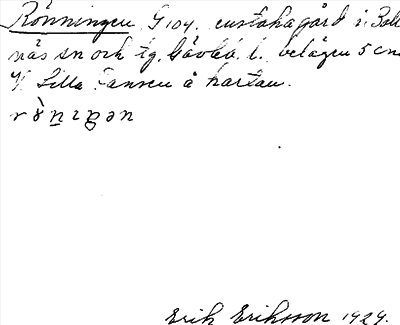 Rönningen G 104. enstaka gård i Boll
näs sn och tg, Gävleb. l. belägen 5 cm
V. Lilla å kartan.
Erik Eriksson 1929.